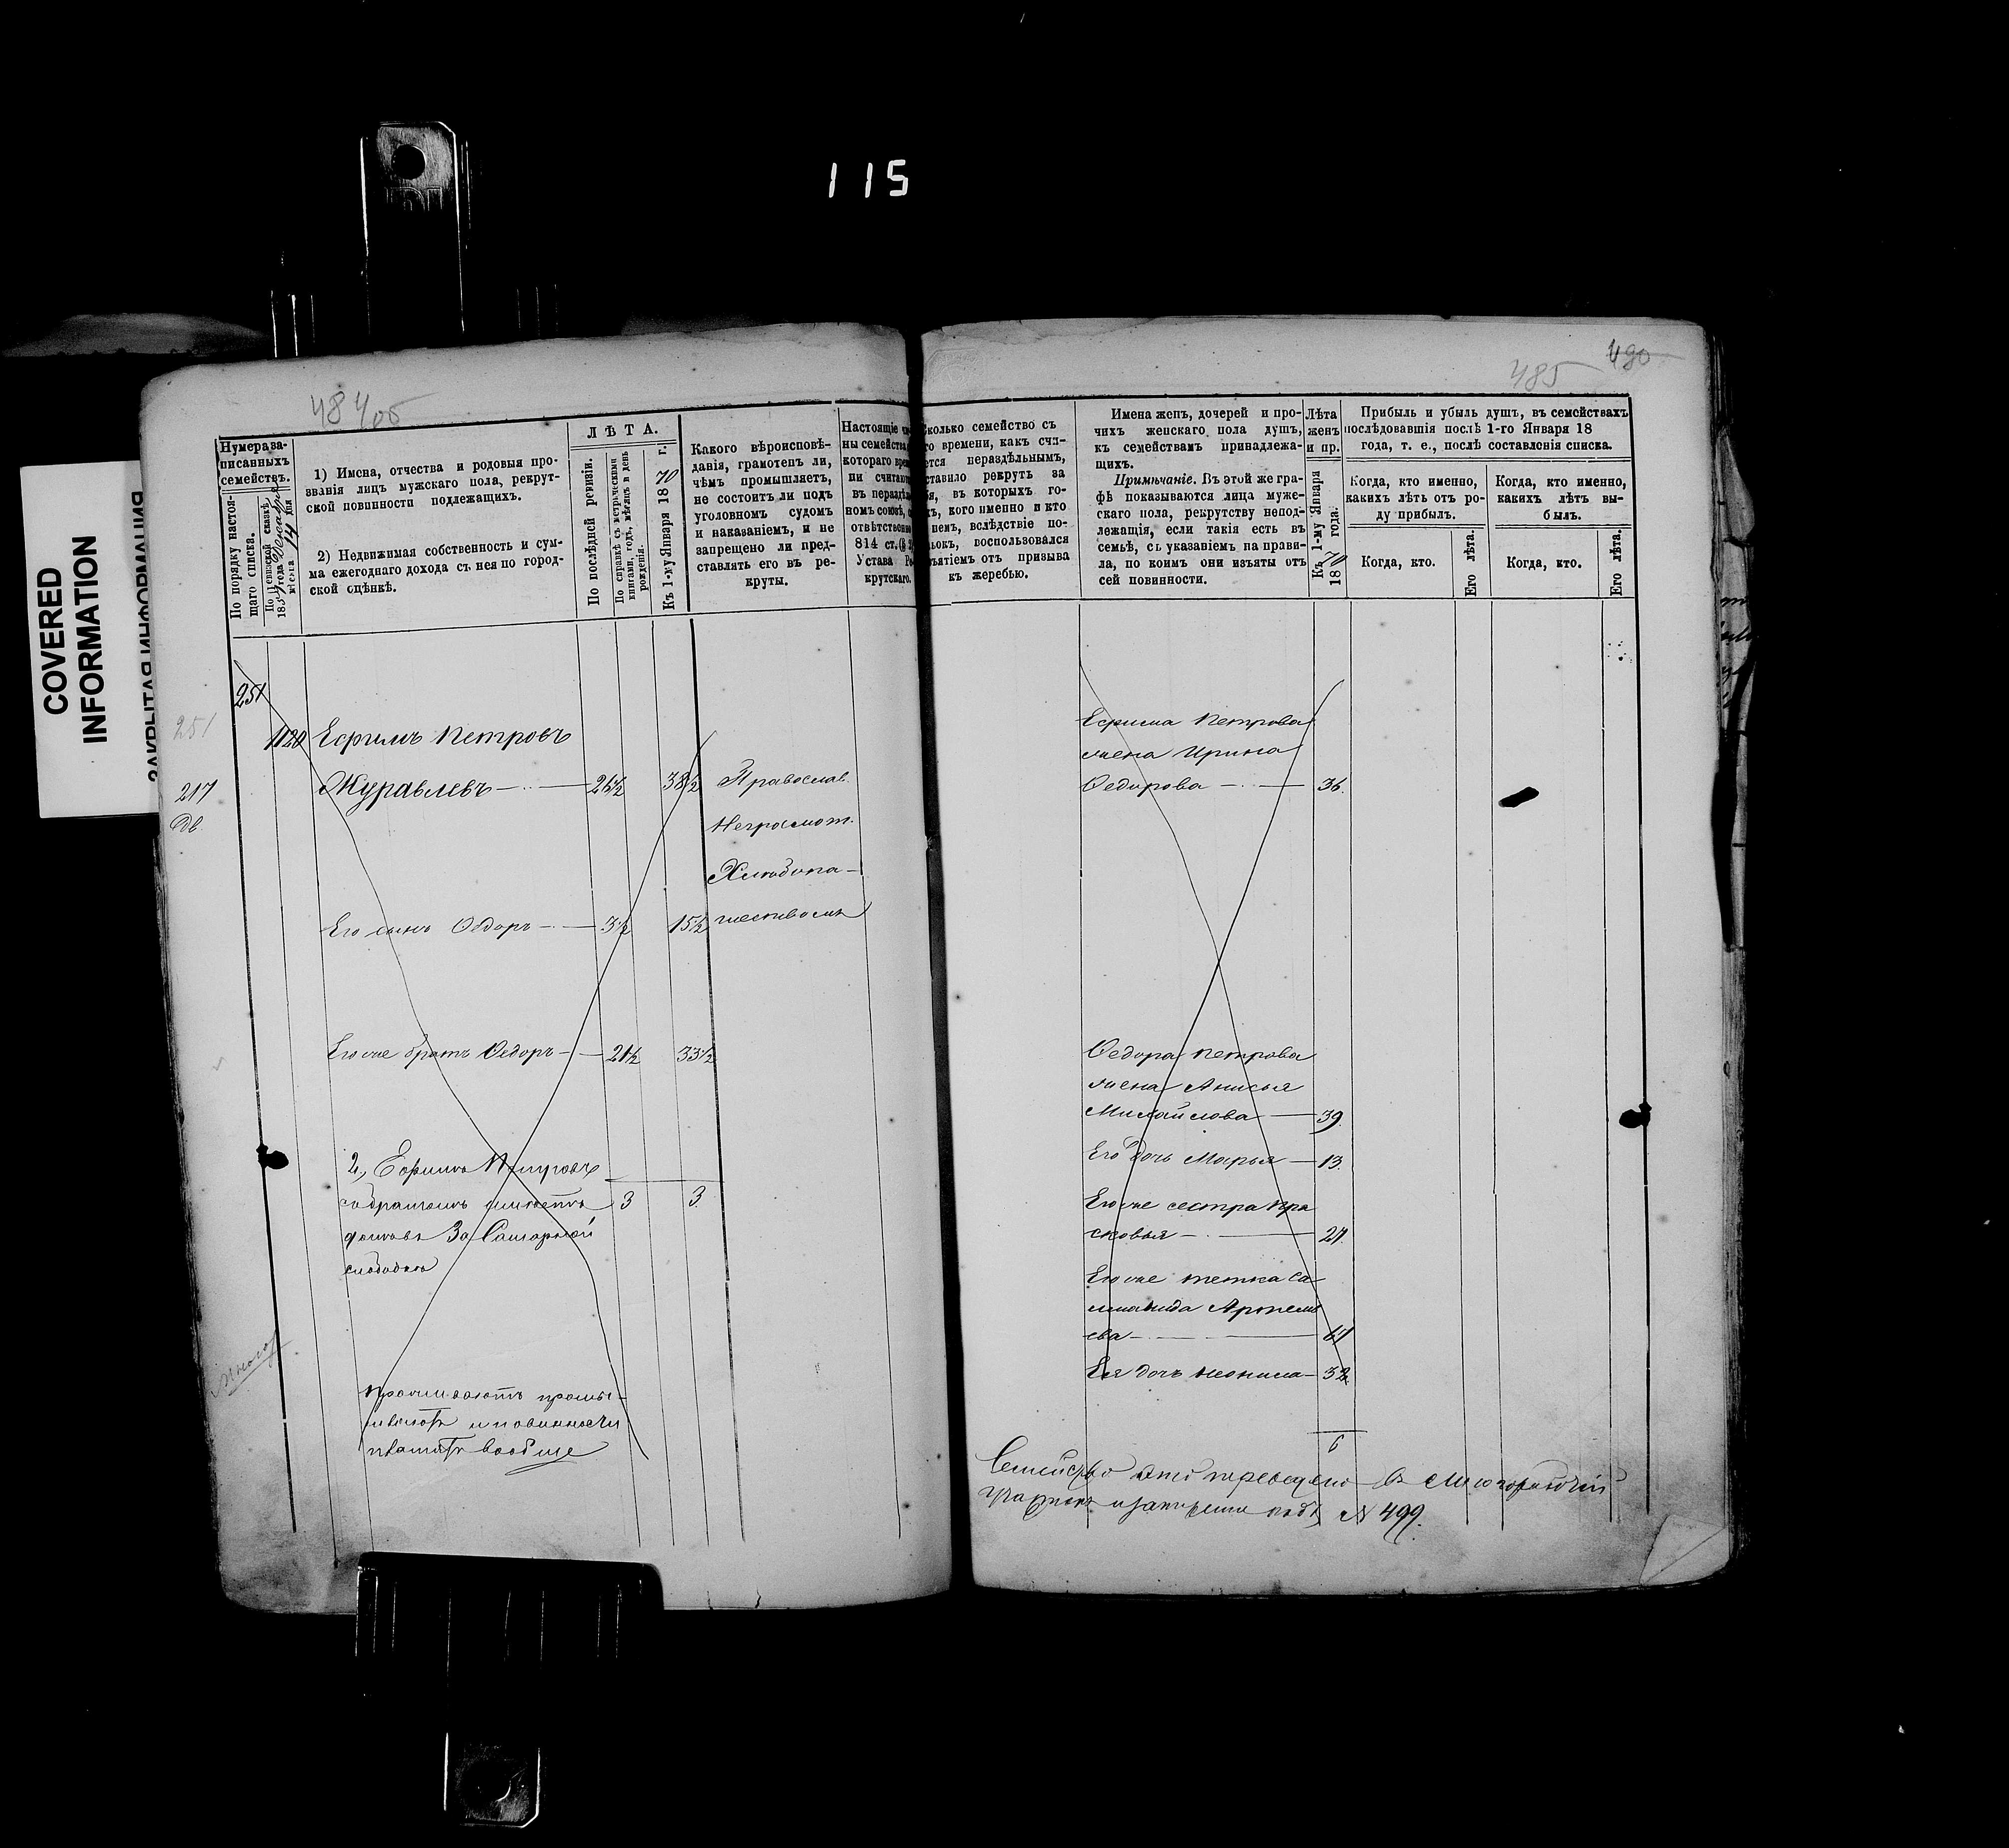 115
COVERED
INFORMATION
ЗАКРЫТАЯ ИНФОРМАЦИЯ
484 об
Нумера за-
писанныхъ
семействъ.
По порядку настоя-
щаго списка.
По ревизской сказкѣ
1) Имена, отчества и родовыя про-
званія лицъ мужскаго пола, рекрут-
ской повинности подлежащихъ.
2) Недвижимая собственность и сум-
ма ежегоднаго дохода съ нея по город-
ской оцѣнкѣ.
ЛѢТА.
По послѣдней ревизіи.
По справкѣ съ метрическими
книгами, годъ, мѣсяцъ и день
рожденія.
Къ 1-му Января 1870 г.
Какого вѣроисповѣ-
данія, грамотенъ ли,
чѣмъ промышляетъ,
не состоитъ ли подъ
уголовномъ судомъ
и наказаніемъ, и не
запрещено ли пред-
ставлять его въ ре-
круты.
Настоящіе
ны семейства
котораго
ни считаю
въ нераздѣ
номъ союзѣ,
отвѣтствен
814 ст.
Устава Ре
крутскаго.
251
251
1120 Ефримъ Петровъ
217
Журавлевъ 26½ 38½ Православ.
Неграмот.
Хлѣбопа-
шествомъ
Его сынъ Ѳедоръ 3½ 15½
Его же братъ Ѳедоръ 21½ 33½
2, Ефримъ Петровъ
съ братомъ имѣетъ 3 3
домъ За Самарной
слободкѣ
Проживаютъ промы-
шляютъ и повинности
платятъ вообще
485 490
сколько семейство съ
го времени, какъ счи-
ется нераздѣльнымъ,
ставило рекрутъ за
я, въ которыхъ го-
хъ, кого именно и кто
немъ, вслѣдствіе по-
ьокъ, воспользовался
ъятіемъ отъ призыва
къ жеребью.
Имена женъ, дочерей и про-
чихъ женскаго пола душъ,
къ семействамъ принадлежа-
щихъ.
Примѣчаніе. Въ этой же гра-
фѣ показываются лица муже-
скаго пола, рекрутству непод-
лежащія, если такія есть въ
семьѣ, съ указаніемъ на прави-
ла, по коимъ они изъяты отъ
сей повинности.
Лѣта
женъ
и пр.
Къ 1-му Января
1870 года.
Прибыль и убыль душъ, въ семействахъ
послѣдовавшія послѣ 1-го Января 18
года, т. е., послѣ составленія списка.
Когда, кто именно,
какихъ лѣтъ отъ ро-
ду прибылъ.
Когда, кто именно,
какихъ лѣтъ вы-
былъ.
Когда, кто.
Его лѣта.
Когда, кто.
Его лѣта.
Ефрима Петрова
жена Ирина
Ѳедорова 36.
Ѳедора Петрова
жена Анисья
Михайлова 39.
Его дочь Марья 13.
Его же сестра Пра
сковья
Его же тетка Са
ломанида Артемь
ева
Ея дочь 32
6
Семейство это переведено въ
участокъ и записано подъ № 499.